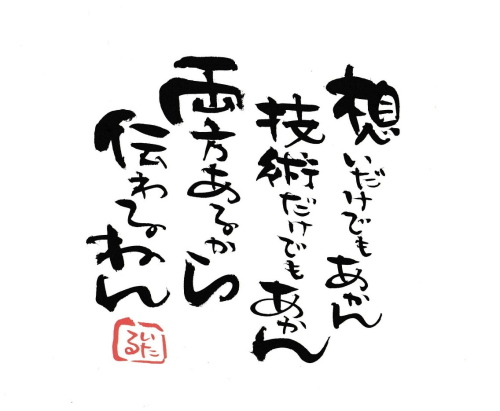 想いだけでもあかん
技術だけでもあかん
両方あるから
伝わるねん